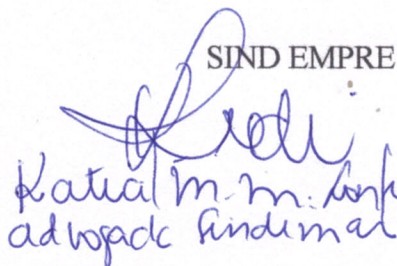 SIND EMPRE
Katia M. M.
advogada Sindimar